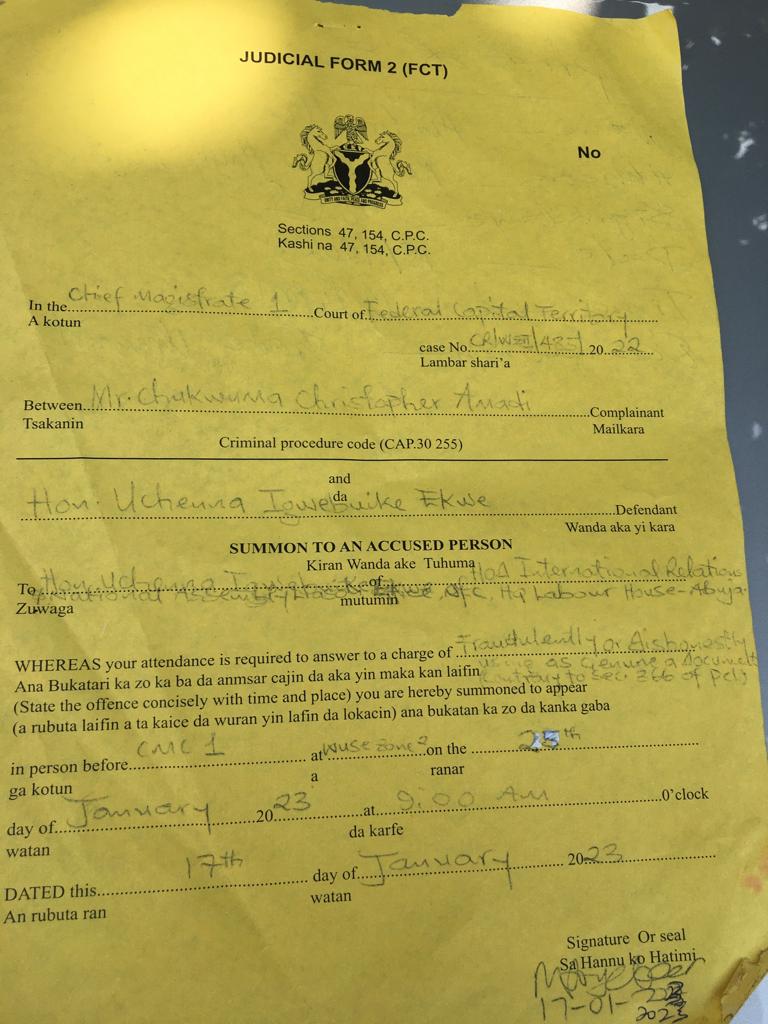 JUDICIAL FORM 2 (FCT)
No
Sections 47, 154, C.P.C.
Kashi na 47, 154, C.P.C.
In the Chief Magistrate 1 Court of Federal Capital Territory
A kotun
case No. CR/WZII/435/2022
Lambar shari'a
Between Mr. Chukwuma Christopher Amadi Complainant
Tsakanin Mailkara
Criminal procedure code (CAP.30 255)
and
da
Hon. Uchenna Igwebuike Ekwe Defendant
Wanda aka yi kara
SUMMON TO AN ACCUSED PERSON
Kiran Wanda ake Tuhuma
To Hon. Uchenna of HOD International Relations
NLC, Hq Labour House-Abuja.
Zuwaga mutumin
WHEREAS your attendance is required to answer to a charge of Fraudulently or Dishonestly
Ana Bukatari ka zo ka ba da anmsar cajin da aka yin maka kan laifin using as Genuine a Document
(State the offence concisely with time and place) you are hereby summoned to appear contrary to sec. 366 of pclj
(a rubuta laifin a ta kaice da wuran yin lafin da lokacin) ana bukatan ka zo da kanka gaba
in person before CMC 1 at wuse zone 2 on the 25th
ga kotun a ranar
day of January 2023 at 9:00 AM O'clock
watan da karfe
DATED this 17th day of January 2023
An rubuta ran watan
Signature Or seal
Sa Hannu ko Hatimi
17-01-
2023